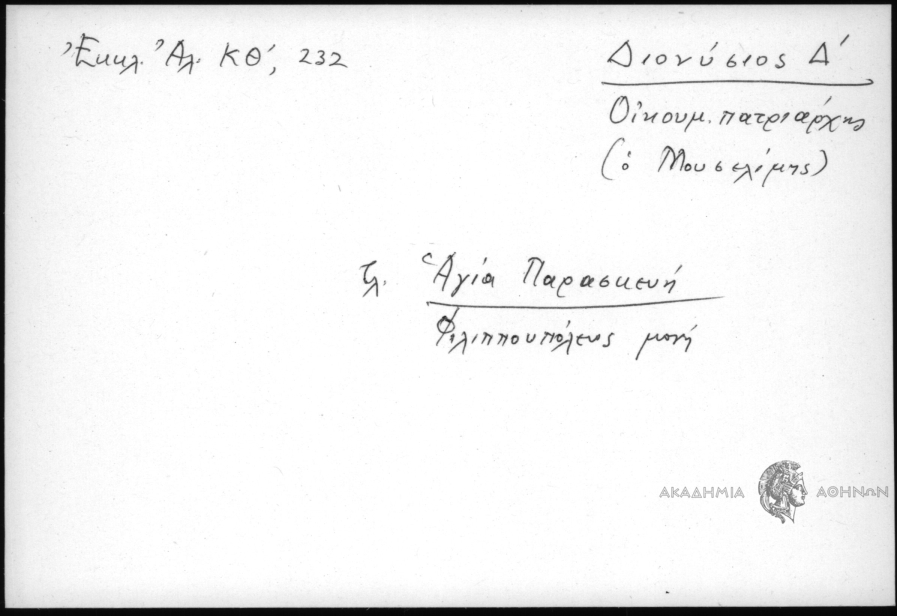 Ἐκκλ. Ἀλ. ΚΘ', 232
Διονύσιος Δ'
Οἰκουμ. πατριάρχης
(ὁ Μουσελίμης)
βλ. Ἁγία Παρασκευή
Φιλιππουπόλεως μονή
ΑΚΑΔΗΜΙΑ ΑΘΗΝΩΝ